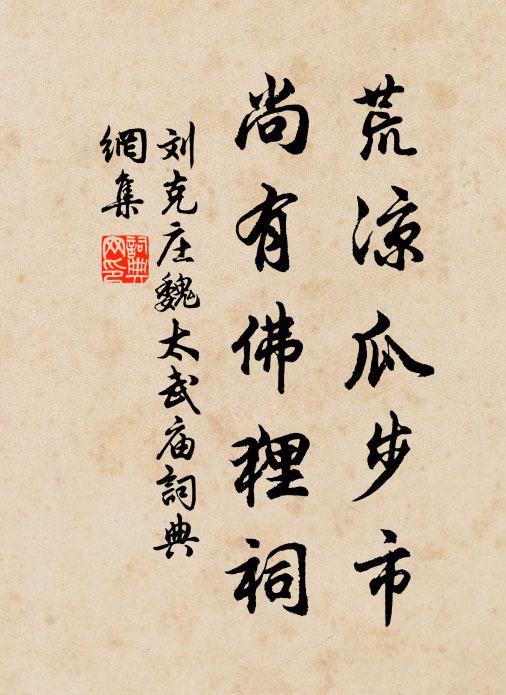 荒凉瓜步市
尚有佛狸祠
刘克庄魏太武庙詞典
網集
詞典网印